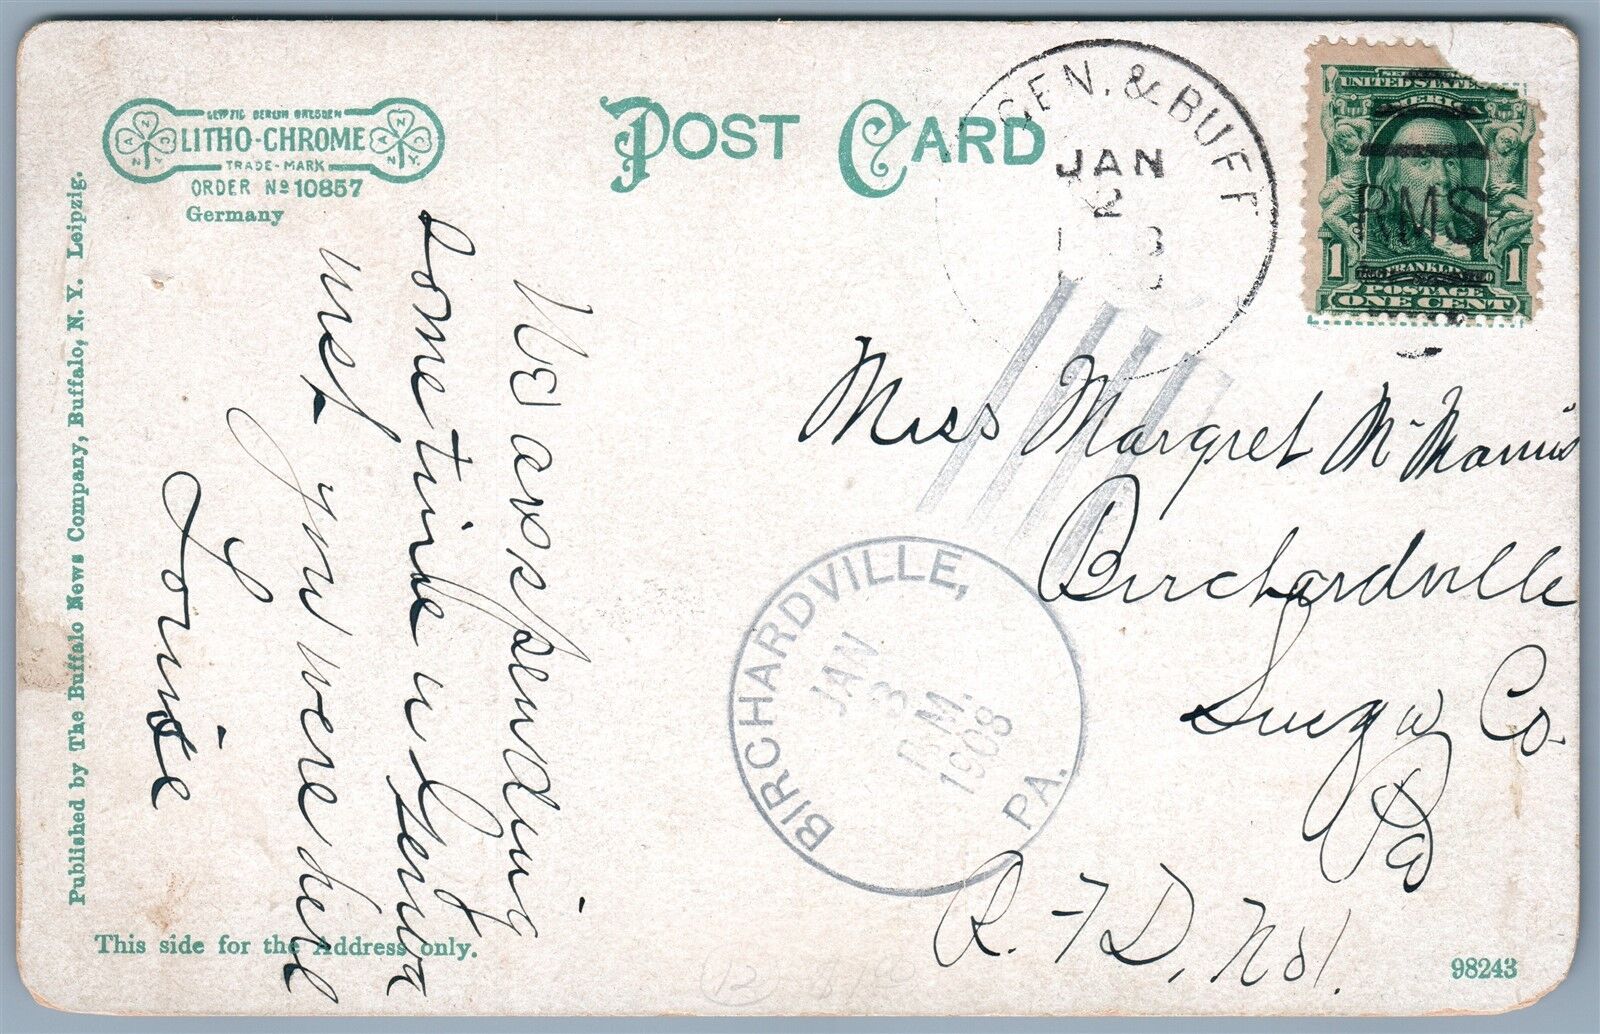 LEIPZIG BERLIN DRESDEN
LITHO-CHROME
TRADE-MARK
ORDER No 10857
Germany
POST CARD
GEN. & BUFF
JAN
2
UNITED STATES
AMERICA
RMS
FRANKLIN
1 1
POSTAGE
ONE CENT
Published by The Buffalo News Company, Buffalo, N. Y. Leipzig.
We are spending
some time in Geneva
wish you were here
Louise
Miss Margret McManus
Birchardville
Susq'a Co
Pa
R.F.D. No 1.
BIRCHARDVILLE, PA.
JAN
3
P.M.
1908
This side for the Address only.
98243